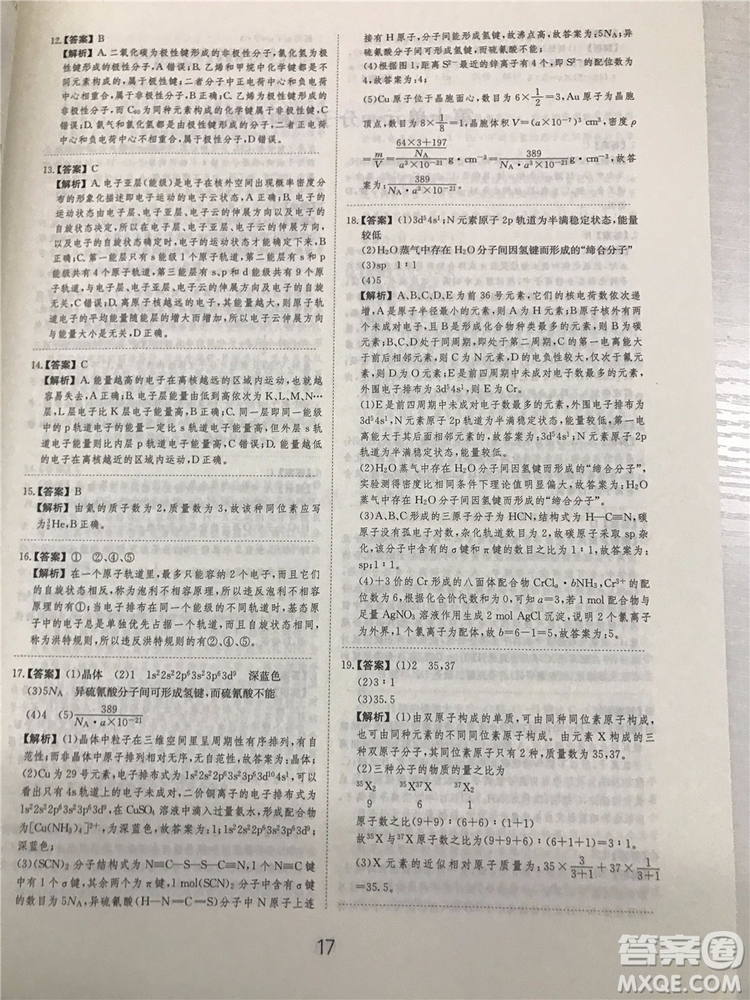 12.【答案】B
【解析】A. 二氧化碳为极性键形成的非极性分子，氯化氢为极性
键形成的极性分子，A错误；B. 乙烯和甲烷中化学键都是不
同元素形成的极性键；二者分子中正电荷中心和负电荷
中心相重合，属于非极性分子，B正确；C. 乙烯为极性键形成
的非极性分子，而C₆₀为同种元素构成的非极性分子，C错
误；D. 氨气和氯化氢都是极性分子；二者正电荷中心和负电
荷中心不重合，属于极性分子，D错误。
13.【答案】C
【解析】A. 电子亚层(能级)是电子在核外空间出现概率密度分
布的形象化描述即电子运动的状态，A错误；B. 电子的
运动状态由电子层、电子亚层、电子云的伸展方向以及电子
的自旋状态决定，所以电子云的伸展方向与能量大小无关，
B错误；C. 第一层只有s能级1个轨道，第二层有s和p能级
共有4个原子轨道，第三层有s、p和d能级共有9个原
子轨道，C正确；D. 原子核离核越远的电子，其能量越大，原子
轨道电子的平均能量随能层的增大而增加，电子云伸展方向
与能量大小无关，D正确。
14.【答案】C
【解析】A. 能量越高的电子在离核越远的区域内运动，也就越
容易失去，A正确；B. 在离核越远区域内运动的电子能量越
高，原子核外电子层由内到外能量依次增大，有K、L、M、N…
层，L层电子比K层电子能量高，B正确；C. 同一层即同一能
级中的p轨道电子的能量一定比s轨道电子能量高，但外层
s轨道电子能量则比内层p轨道电子能量高，C错误；D. 能量越低
的电子在离核越近的区域内运动，D正确。
15.【答案】B
【解析】由氦的质子数为2，质量数为3，故该种同位素应写
为³₂He，B正确。
16.【答案】① ②、④、⑤
【解析】在一个原子轨道里，最多只能容纳2个电子，而且它们
的自旋状态相反，称为泡利不相容原理，所以违反泡利不相容
原理的有①；当电子排布在同一能级的不同轨道时，基态原子
中的电子总是单独优先占据一个轨道，而且自旋状态
相同，称为洪特规则，所以违反洪特规则的有②、④、⑤。
17.【答案】(1)晶体 (2)1 1s²2s²2p⁶3s²3p⁶3d⁹ 深蓝色
(3)5Nₐ 异硫氰酸分子间可形成氢键，而硫氰酸不能
(4)4 (5)389/(Nₐ·a³×10⁻²¹)
【解析】(1)晶体中粒子在三维空间里呈周期性有序排列，有自
范性；而非晶体中原子排列相对无序，无自范性，故答案为：晶
体；
(2)Cu为29号元素，电子排布式为1s²2s²2p⁶3s²3p⁶3d¹⁰4s¹，可以
看出只有4s轨道上有一个未成对电子，二价铜离子的电子排布式为
1s²2s²2p⁶3s²3p⁶3d⁹，在CuSO₄溶液中滴入过量氨水，形成配合物
为[Cu(NH₃)₄]²⁺，为深蓝色，故答案为：1；1s²2s²2p⁶3s²3p⁶3d⁹；
深蓝色；
(3)(SCN)₂分子结构式为N≡C—S—S—C≡N，1个N≡C键
中有1个σ键，两个π键，1 mol(SCN)₂分子中含有π键
的数目为5Nₐ，异硫氰酸(H—N=C=S)分子中N原子上连
接有H原子，分子间能形成氢键，故沸点高，故答案为：5Nₐ，异
硫氰酸分子间可形成氢键，而硫氰酸不能；
(4)根据图1，距离S²⁻最近的锌离子有4个，即S²⁻的配位数为
4，故答案为：4；
(5)Cu原子位于晶胞面心，数目为6×1/2=3，Au原子为晶胞
顶点，数目为8×1/8=1，晶胞体积V=(a×10⁻⁷)³ cm³，密度ρ
=m/V=((64×3+197)/Nₐ)/(a³×10⁻²¹)=(389/Nₐ)/(a³×10⁻²¹)=389/(Nₐ·a³×10⁻²¹)，故答
案为：4；389/(Nₐ·a³×10⁻²¹)。
18.【答案】(1)3d⁵4s¹；N元素原子2p轨道为半满稳定状态，能量
较低
(2)H₂O蒸气中存在H₂O分子间因氢键而形成的“缔合分子”
(3)sp 1∶1
(4)5
【解析】A、B、C、D、E为前36号元素，它们的核电荷数依次递
增，A原子半径最小的为H元素；B原子核外电子有两
个未成对电子，B是形成化合物种类最多的元素，所以为碳
元素，D与B同族……
(1)E是前四周期中未成对电子数最多的元素，外围电子排布为
3d⁵4s¹；N元素原子2p轨道为半满稳定状态，能量较低，第一电
离能大于其后相邻元素，故答案为：3d⁵4s¹；N元素原子2p
轨道为半满稳定状态，能量较低；
(2)H₂O蒸气中存在H₂O分子间因氢键而形成的“缔合分子”，
实验测得密度比相同条件下理论值明显偏大，故答案为：H₂O
蒸气中存在H₂O分子间因氢键而形成的“缔合分子”；
(3)A、B、C形成的三原子分子为HCN，结构式为H—C≡N，
碳原子无孤对电子对数，杂化轨道数目为2，故碳原子采取sp
杂化，分子中含有的σ键和π键的数目之比为1∶1，故答案为：
sp；1∶1；
(4)+3价的Cr形成的八面体配合物CrClₐ·bNH₃，Cr³⁺的配
位数为6，根据化合价代数和为0，可知a=3，若1 mol配合物与
足量AgNO₃溶液作用生成2 mol AgCl沉淀，说明2个氯离子
为外界，1个氯离子为配体，故b=6-1=5，故答案为：5。
19.【答案】(1)2 35，37
(2)3∶1
(3)35.5
【解析】(1)由双原子构成的单质，可由同种同位素原子构成，
也可由同种元素的不同同位素原子构成。由元素X构成三
种不同的双原子单质分子只有2种同位素，质量数为35，37。
(2)三种分子的物质的量之比为
³⁵X₂ ³⁵X³⁷X ³⁷X₂
9 6 1
原子数之比为(9+9+6)∶(6+1+1)=3∶1
故³⁵X与³⁷X原子数之比为(9+9+6)∶(6+1+1)=3∶1。
(3)X元素的近似相对原子质量为：35×3/(3+1)+37×1/(3+1)
=35.5。
17
答案圈
MXQE.COM